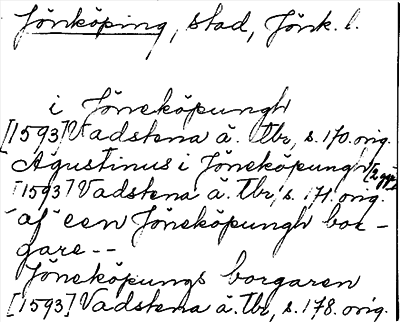 Jönköping, stad, Jönk. l.
i Jöneköpungh
[1593] Vadstena ä. tbr, s. 170. orig.
Agustinus i Jöneköpungh [2 ggr]
[1593] Vadstena ä. tbr, s. 171. orig.
af een Jöneköpungh bor-
gare --
Jöneköpungs borgaren
[1593] Vadstena ä. tbr, s. 178. orig.